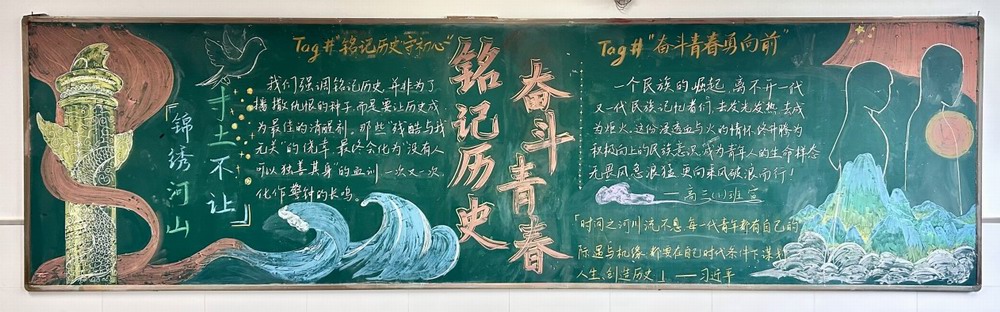 Tag#"铭记历史守初心"
我们强调铭记历史,并非为了
播撒仇恨的种子,而是要让历史成
为最佳的清醒剂,那些"残酷与我
无关"的侥幸,最终会化为"没有人
可以独善其身"的血训,一次又一次
化作警钟的长鸣。
「锦绣河山
寸土不让」
铭记历史
奋斗青春
Tag#"奋斗青春勇向前"
一个民族的崛起,离不开一代
又一代民族记忆者们,去发光发热,去成
为炬火,这份浸透血与火的情怀,终升腾为
积极向上的民族意识,成为青年人的生命样态
无畏风急浪猛,更向乘风破浪而行!
——高三(1)班 宣
「时间之河川流不息,每一代青年都有自己的
际遇与机缘,都要在自己时代条件下谋划
人生、创造历史」——习近平